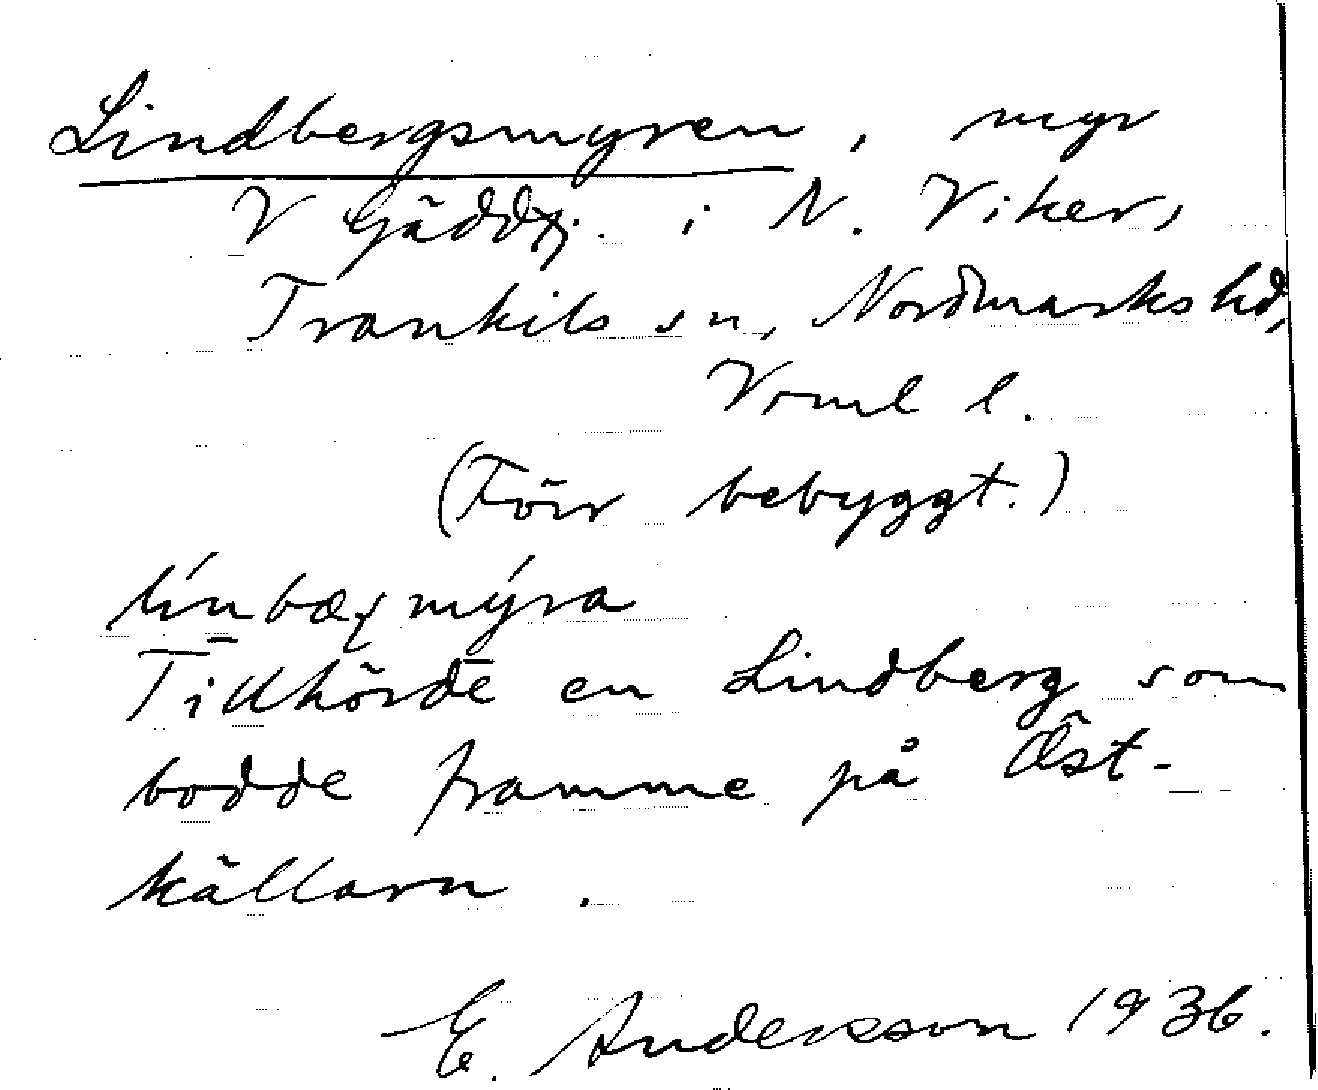 Lindbergsmyren, myr
V Gäddtj. i N. Viker,
Trankils sn, Nordmarks hd,
Vrml l.
(Förr bebyggt.)
mýra
Tillhörde en Lindberg som
bodde framme på Öst-
källarn.
E. Andersson 1936.